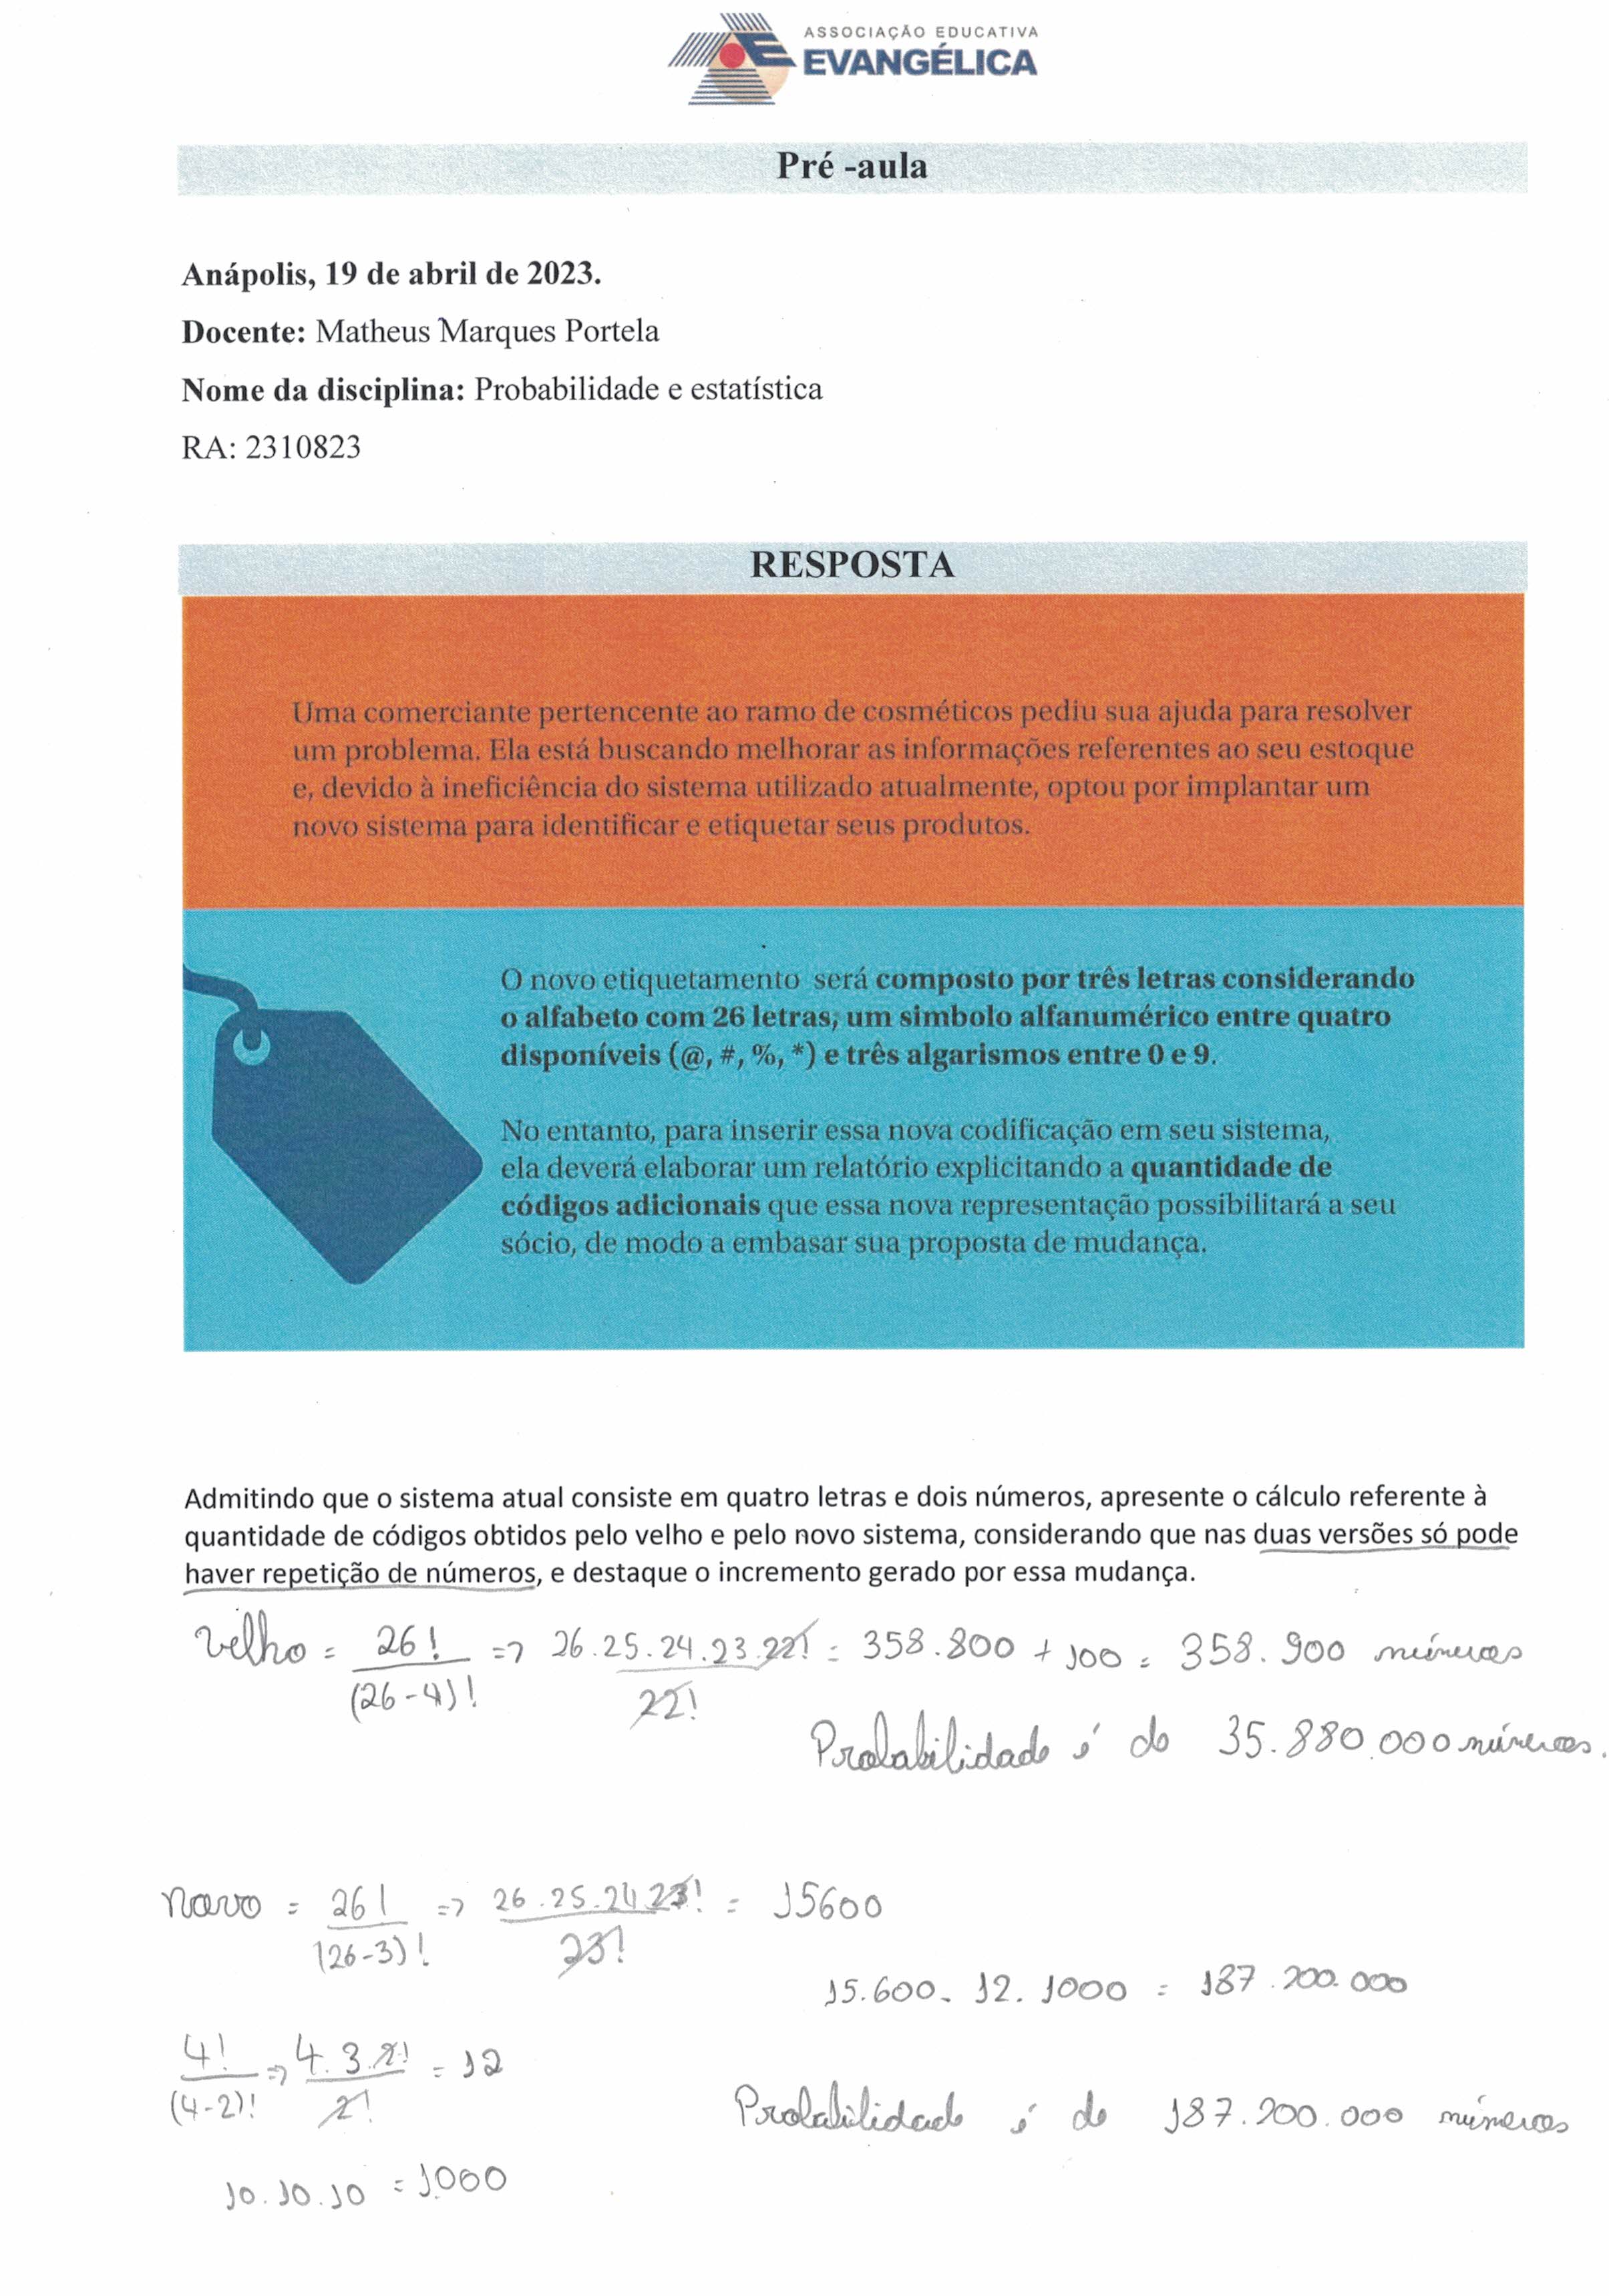 ASSOCIAÇÃO EDUCATIVA
EVANGÉLICA
Pré -aula
Anápolis, 19 de abril de 2023.
Docente: Matheus Marques Portela
Nome da disciplina: Probabilidade e estatística
RA: 2310823
RESPOSTA
Uma comerciante pertencente ao ramo de cosméticos pediu sua ajuda para resolver
um problema. Ela está buscando melhorar as informações referentes ao seu estoque
e, devido à ineficiência do sistema utilizado atualmente, optou por implantar um
novo sistema para identificar e etiquetar seus produtos.
O novo etiquetamento será composto por três letras considerando
o alfabeto com 26 letras, um simbolo alfanumérico entre quatro
disponíveis (@, #, %, *) e três algarismos entre 0 e 9.
No entanto, para inserir essa nova codificação em seu sistema,
ela deverá elaborar um relatório explicitando a quantidade de
códigos adicionais que essa nova representação possibilitará a seu
sócio, de modo a embasar sua proposta de mudança.
Admitindo que o sistema atual consiste em quatro letras e dois números, apresente o cálculo referente à
quantidade de códigos obtidos pelo velho e pelo novo sistema, considerando que nas duas versões só pode
haver repetição de números, e destaque o incremento gerado por essa mudança.
Velho = 26! => 26.25.24.23.22! = 358.800 + 100 = 358.900 números
(26-4)! 22!
Probabilidade é de 35.880.000 números.
Novo = 26! => 26.25.24 23! = 15600
(26-3)! 23!
15.600. 12. 1000 = 187.200.000
4! => 4.3.2! = 12
(4-2)! 2!
Probabilidade é de 187.200.000 números
10.10.10 = 1000